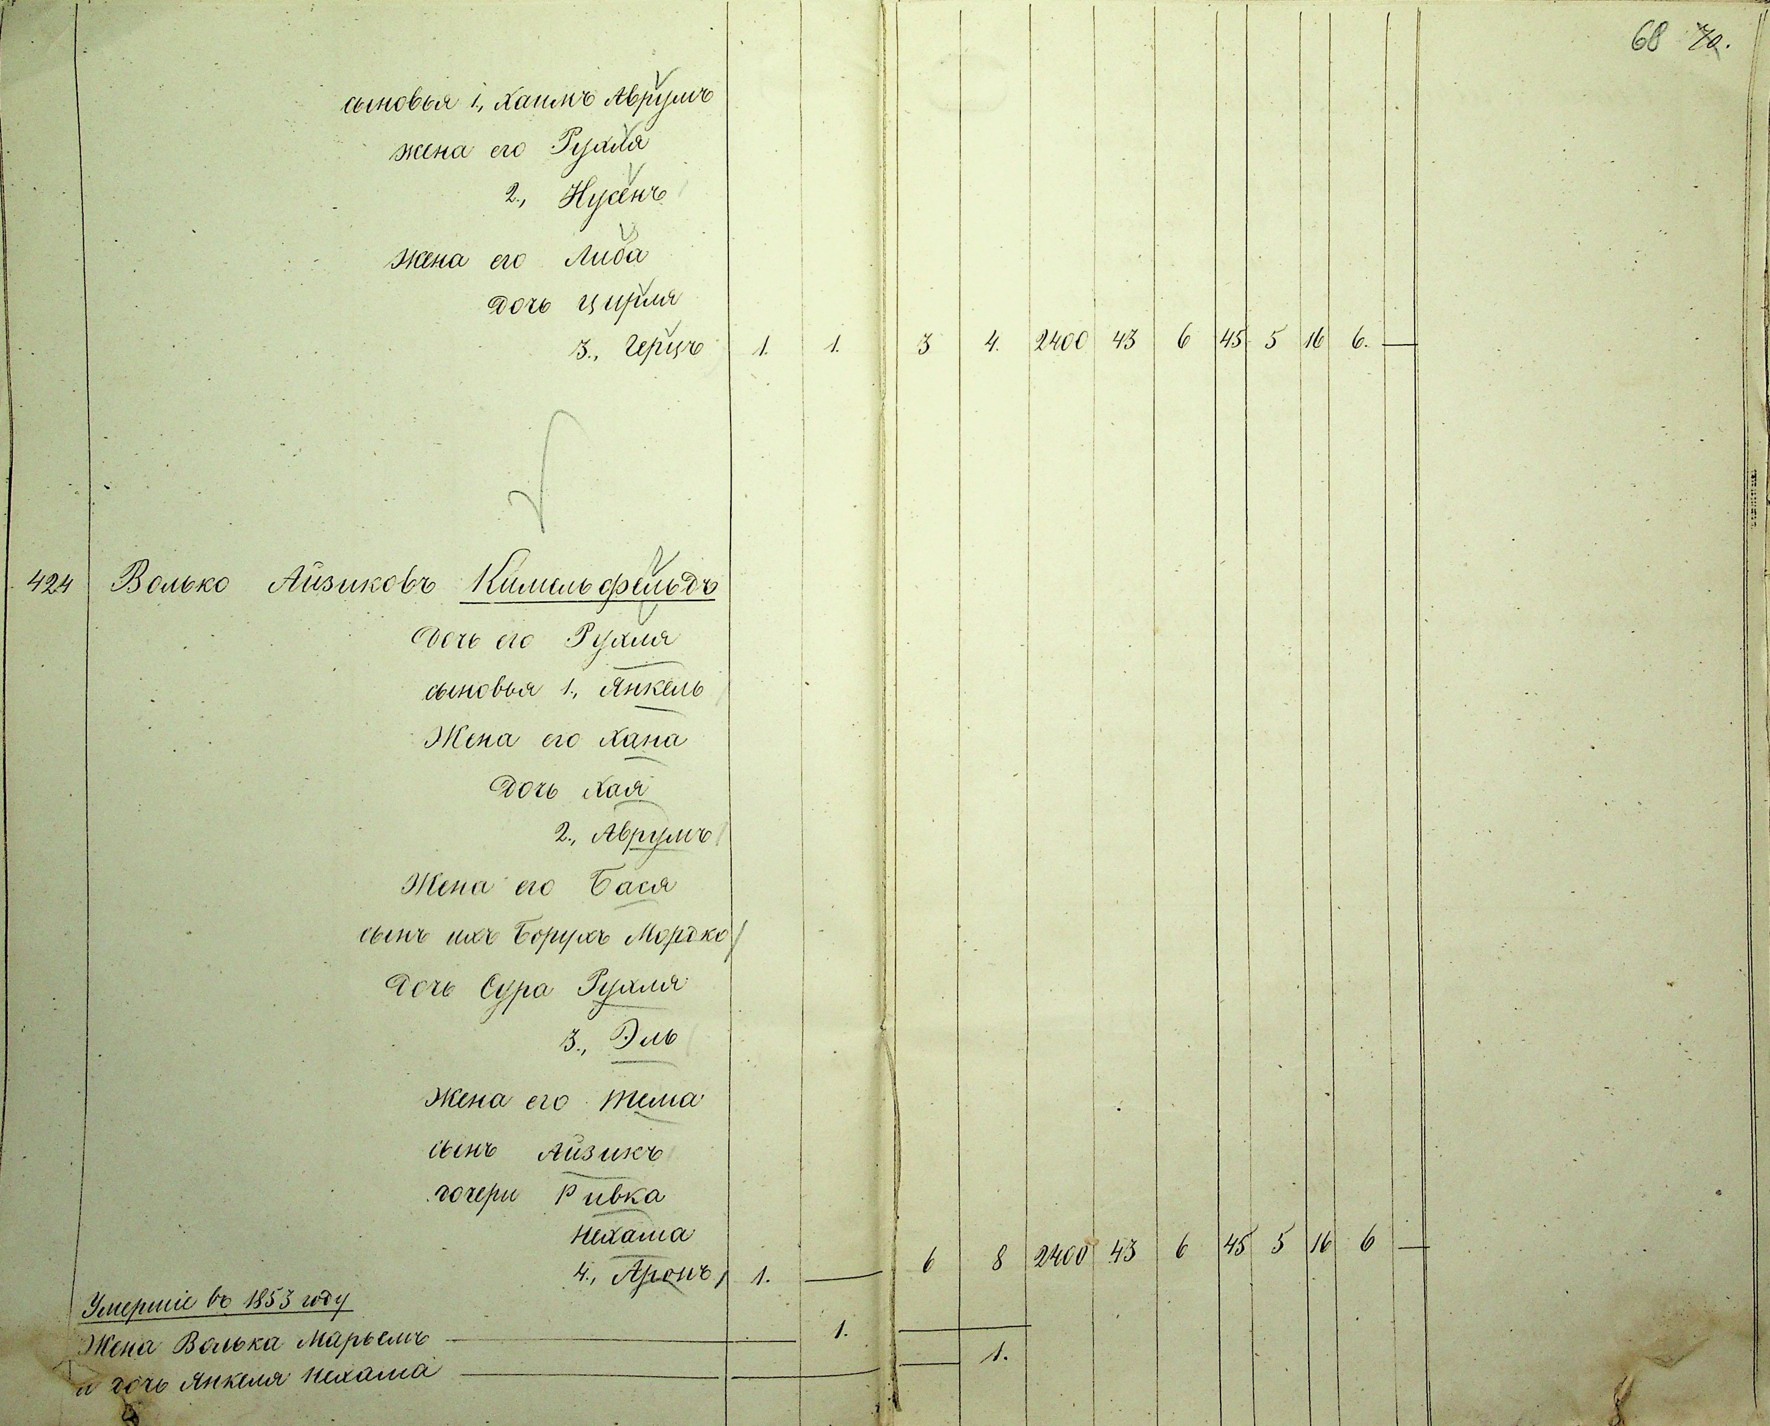 68 70.
сыновья 1., Хаимъ Аврумъ
жена его Рухля
2., Нусенъ
жена его Либа
дочь Цирля
3., Герцъ 1. 1. 3 4. 2400 43 6 45 5 16 6. —
424 Волько Айзиковъ Кимельфельдъ
дочь его Рухля
сыновья 1., Янкель
Жена его Хана
дочь Хая
2., Аврумъ
Жена его Бася
сынъ ихъ Борухъ Мордко
дочь Сура Рухля
3., Эль
жена его Тема
сынъ Айзикъ
дочери Ривка
Нехама
4., Аронъ 1. — 6 8 2400 43 6 45 5 16 6 —
Умершіе въ 1853 году
Жена Волька Марьемъ — 1. —
и дочь Янкеля Нехама — 1.